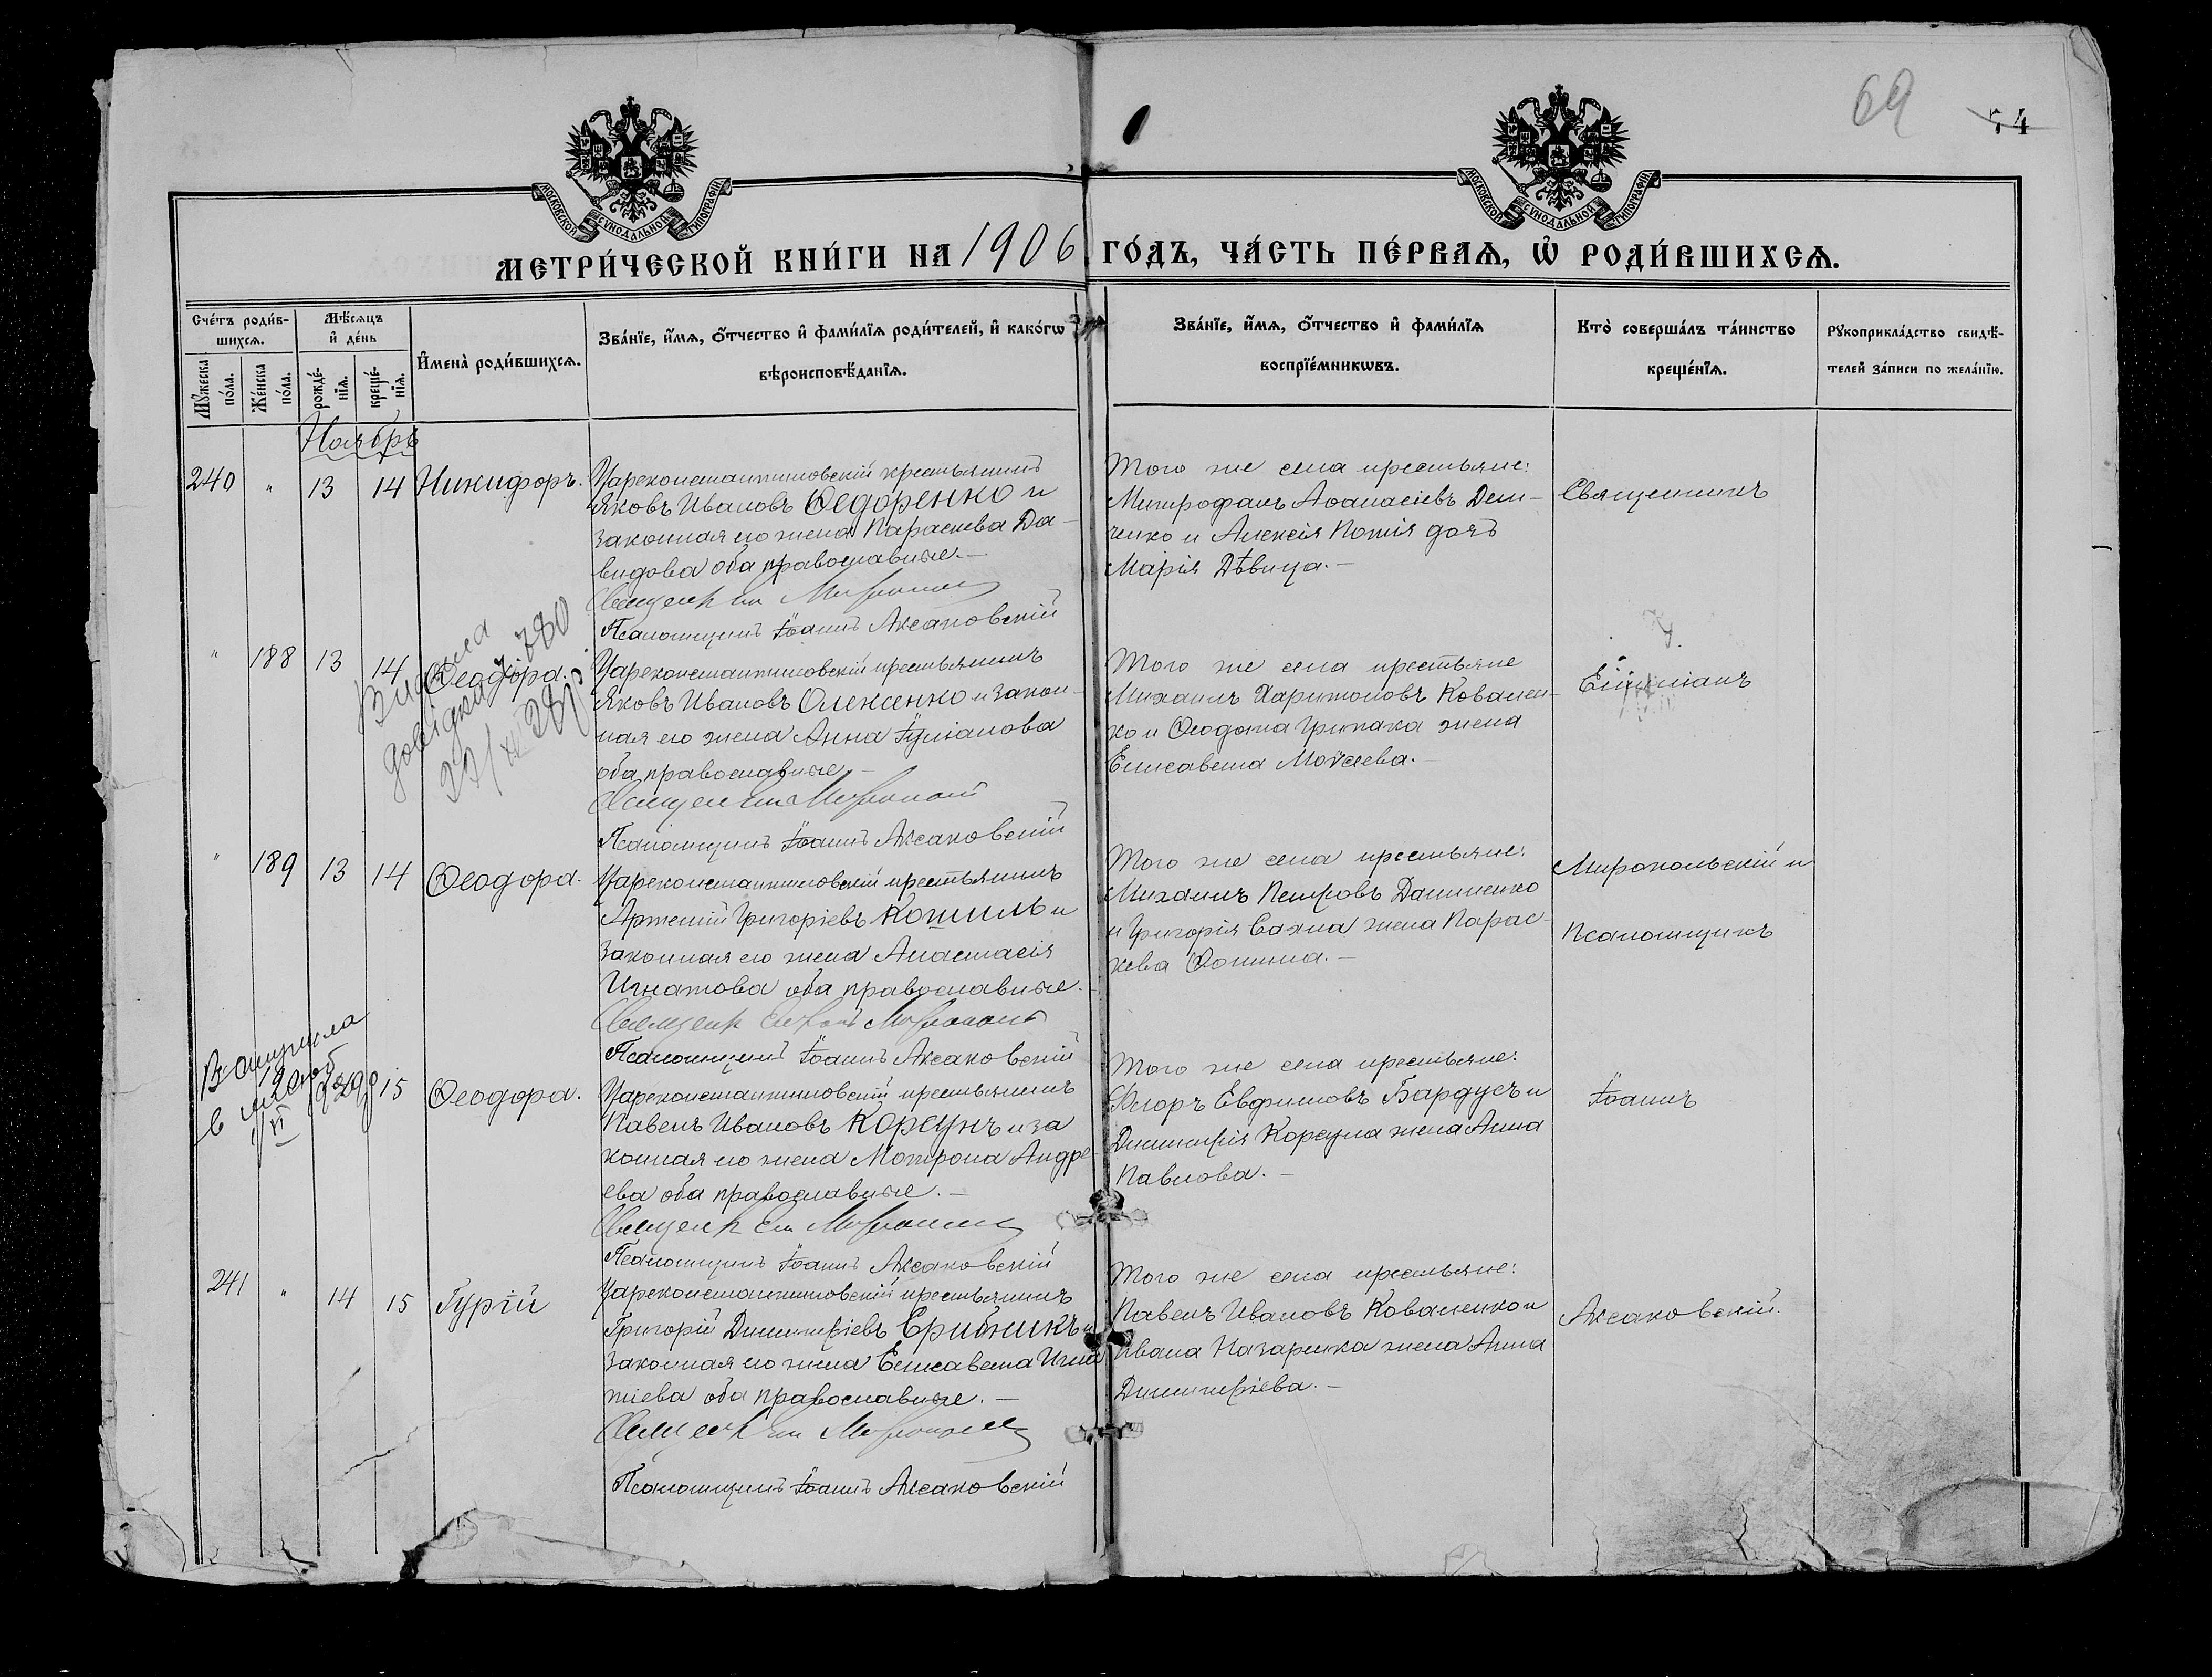 69
74
МОСКОВСКОЙ СѴНОДАЛЬНОЙ ТИПОГРАФІИ
МОСКОВСКОЙ СѴНОДАЛЬНОЙ ТИПОГРАФІИ
МЕТРИ́ЧЕСКОЙ КНИ́ГИ НА 1906 ГО́ДЪ, ЧА́СТЬ ПЕ́РВАѦ, Ѡ҆ РОДИ́ВШИХСѦ.
Сче́тъ роди́в-
шихсѧ.
Мꙋ́жеска по́ла.
Же́нска по́ла.
Мѣ́сѧцъ
и҆ де́нь
рожде́-
нїѧ.
креще́-
нїѧ.
И҆мена̀ роди́вшихсѧ.
Зва́нїе, и҆́мѧ, ѻ҆́тчество и҆ фами́лїѧ роди́телей, и҆ како́гѡ
вѣроисповѣ́данїѧ.
Зва́нїе, и҆́мѧ, ѻ҆́тчество и҆ фами́лїѧ
воспрїе́мникѡвъ.
Кто̀ соверша́лъ та́инство
креще́нїѧ.
Рꙋкоприкла́дство свидѣ́-
телей за́писи по жела́нїю.
Ноябрь
240 " 13 14 Никифоръ.
Цареконстантиновскій крестьянинъ
Яковъ Ивановъ Ѳедоренко и
законная его жена Параскева Да-
видова оба православные.—
Псаломщикъ Іоаннъ Аксаковскій
Того же села крестьяне:
Митрофанъ Аѳанасіевъ Дем-
ченко и Алексія Потія дочь
Марія Дѣвица.—
Священникъ
" 188 13 14 Ѳеодора.
Видана
довідка 780
Цареконстантиновскій крестьянинъ
Яковъ Ивановъ Олексенко и закон-
ная его жена Анна Іуліанова
оба православные.—
Псаломщикъ Іоаннъ Аксаковскій
Того же села крестьяне
Михаилъ Харитоновъ Ковален-
ко и Ѳеодота Грипака жена
Елисавета Моѵсеева.—
Емиліанъ
" 189 13 14 Ѳеодора.
Цареконстантиновскій крестьянинъ
Артемій Григоріевъ Кошиль и
законная его жена Анастасія
Игнатова оба православные.—
Псаломщикъ Іоаннъ Аксаковскій
Того же села крестьяне:
Михаилъ Петровъ Даниленко
и Григорія Сахна жена Парас-
кева Ѳомина.—
Миропольскій и
Псаломщикъ
15 Ѳеодора.
Цареконстантиновскій крестьянинъ
Павелъ Ивановъ Корсунъ и за
конная его жена Мотрона Андре-
ева оба православные.—
Псаломщикъ Іоаннъ Аксаковскій
Того же села крестьяне:
Флоръ Евфимовъ Бардусъ и
Димитрія Корсуна жена Анна
Павлова.—
Іоаннъ
241 " 14 15 Гурій
Цареконстантиновскій крестьянинъ
Григорій Димитріевъ Ерибникъ и
законная его жена Елисавета Игна
тіева оба православные.—
Псаломщикъ Іоаннъ Аксаковскій
Того же села крестьяне:
Павелъ Ивановъ Коваленко и
Ивана Назаренка жена Анна
Димитріева.—
Аксаковскій.